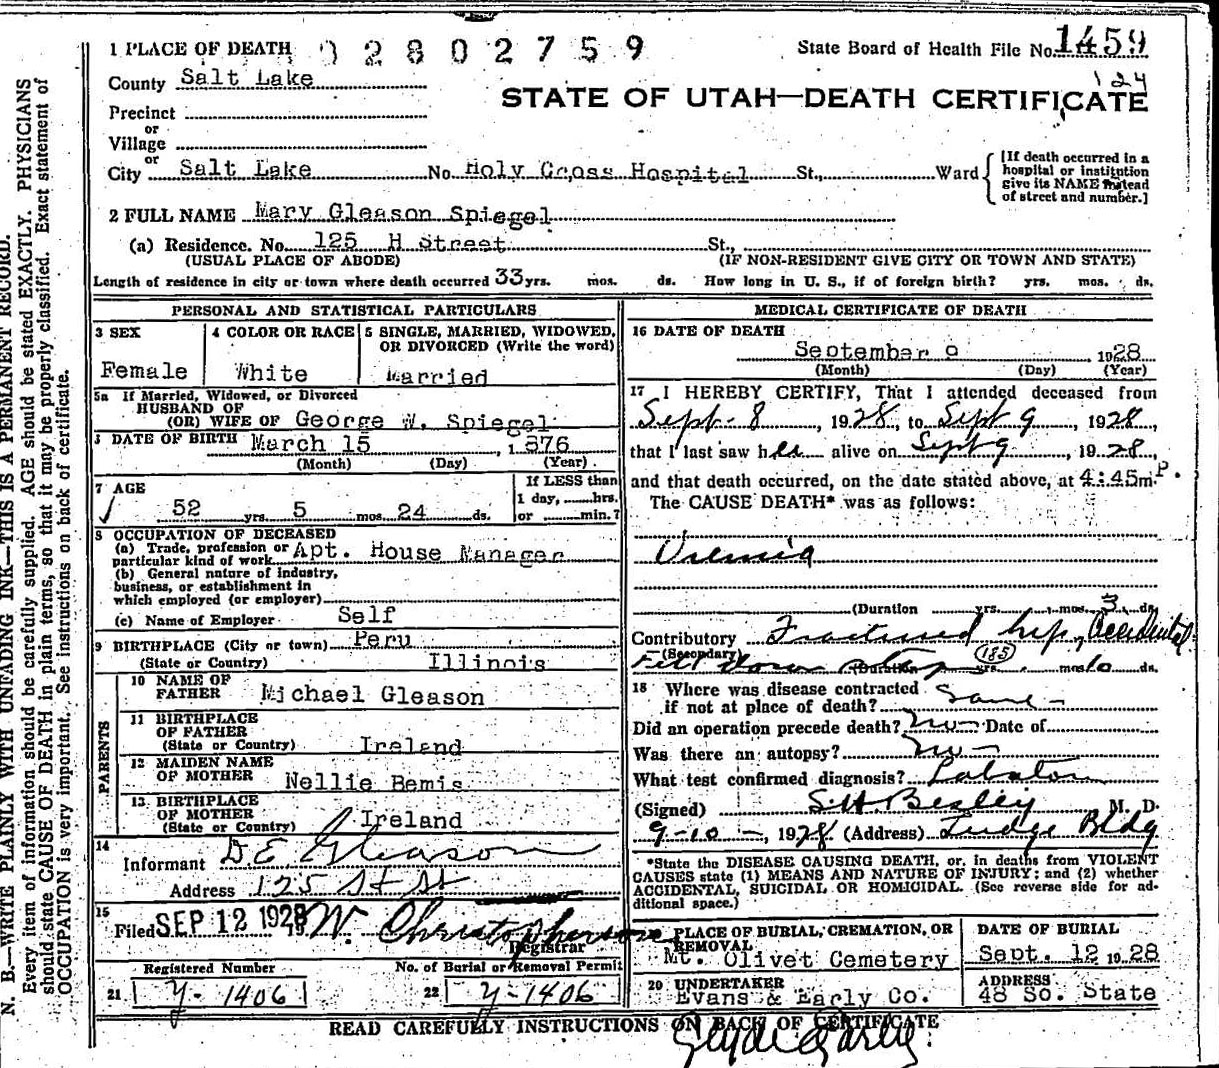 1 PLACE OF DEATH 02802759 State Board of Health File No. 1459
County Salt Lake 124
STATE OF UTAH—DEATH CERTIFICATE
Precinct
or
Village
or
City Salt Lake No. Holy Cross Hospital St., Ward
[If death occurred in a hospital or institution give its NAME instead of street and number.]
2 FULL NAME Mary Gleason Spiegel
(a) Residence. No. 125 H Street St.,
(USUAL PLACE OF ABODE) (IF NON-RESIDENT GIVE CITY OR TOWN AND STATE)
Length of residence in city or town where death occurred 33 yrs. mos. ds. How long in U. S., if of foreign birth? yrs. mos. ds.
PERSONAL AND STATISTICAL PARTICULARS
3 SEX
Female
4 COLOR OR RACE
White
5 SINGLE, MARRIED, WIDOWED, OR DIVORCED (Write the word)
Married
5a If Married, Widowed, or Divorced
HUSBAND OF
(OR) WIFE OF George W. Spiegel
DATE OF BIRTH March 15, 1876
(Month) (Day) (Year)
7 AGE
52 yrs. 5 mos. 24 ds.
If LESS than
1 day, hrs.
or min.?
8 OCCUPATION OF DECEASED
(a) Trade, profession or particular kind of work Apt. House Manager
(b) General nature of industry,
business, or establishment in
which employed (or employer)
(c) Name of Employer Self
9 BIRTHPLACE (City or town) Peru
(State or Country) Illinois
PARENTS
10 NAME OF FATHER Michael Gleason
11 BIRTHPLACE OF FATHER
(State or Country) Ireland
12 MAIDEN NAME OF MOTHER Nellie Bemis
13 BIRTHPLACE OF MOTHER
(State or Country) Ireland
14
Informant D E Gleason
Address 125 H St
15
Filed SEP 12 1928 W. Christopherson
Registrar
Registered Number No. of Burial or Removal Permit
21 Y-1406 22 Y-1406
MEDICAL CERTIFICATE OF DEATH
16 DATE OF DEATH
September 9, 1928
(Month) (Day) (Year)
17 I HEREBY CERTIFY, That I attended deceased from
Sept-8, 1928, to Sept 9, 1928,
that I last saw her alive on Sept 9, 1928,
and that death occurred, on the date stated above, at 4:45 P.m.
The CAUSE DEATH* was as follows:
Uremia
(Duration yrs. mos. 3 ds.
Contributory Fractured hip, Accidental
(Secondary)
Fell down step (Duration 185 yrs. mos. 10 ds.
18 Where was disease contracted
if not at place of death? Same
Did an operation precede death? no Date of
Was there an autopsy? no
What test confirmed diagnosis?
(Signed) S H Besley M. D.
9-10-, 1928 (Address) Judge Bldg
*State the DISEASE CAUSING DEATH, or, in deaths from VIOLENT
CAUSES state (1) MEANS AND NATURE OF INJURY; and (2) whether
ACCIDENTAL, SUICIDAL OR HOMICIDAL. (See reverse side for ad-
ditional space.)
PLACE OF BURIAL, CREMATION, OR REMOVAL
Mt. Olivet Cemetery
DATE OF BURIAL
Sept. 12 1928
20 UNDERTAKER
Evans & Early Co.
ADDRESS
48 So. State
READ CAREFULLY INSTRUCTIONS ON BACK OF CERTIFICATE
N. B.—WRITE PLAINLY WITH UNFADING INK—THIS IS A PERMANENT RECORD.
Every item of information should be carefully supplied. AGE should be stated EXACTLY. PHYSICIANS
should state CAUSE OF DEATH in plain terms, so that it may be properly classified. Exact statement of
OCCUPATION is very important. See instructions on back of certificate.